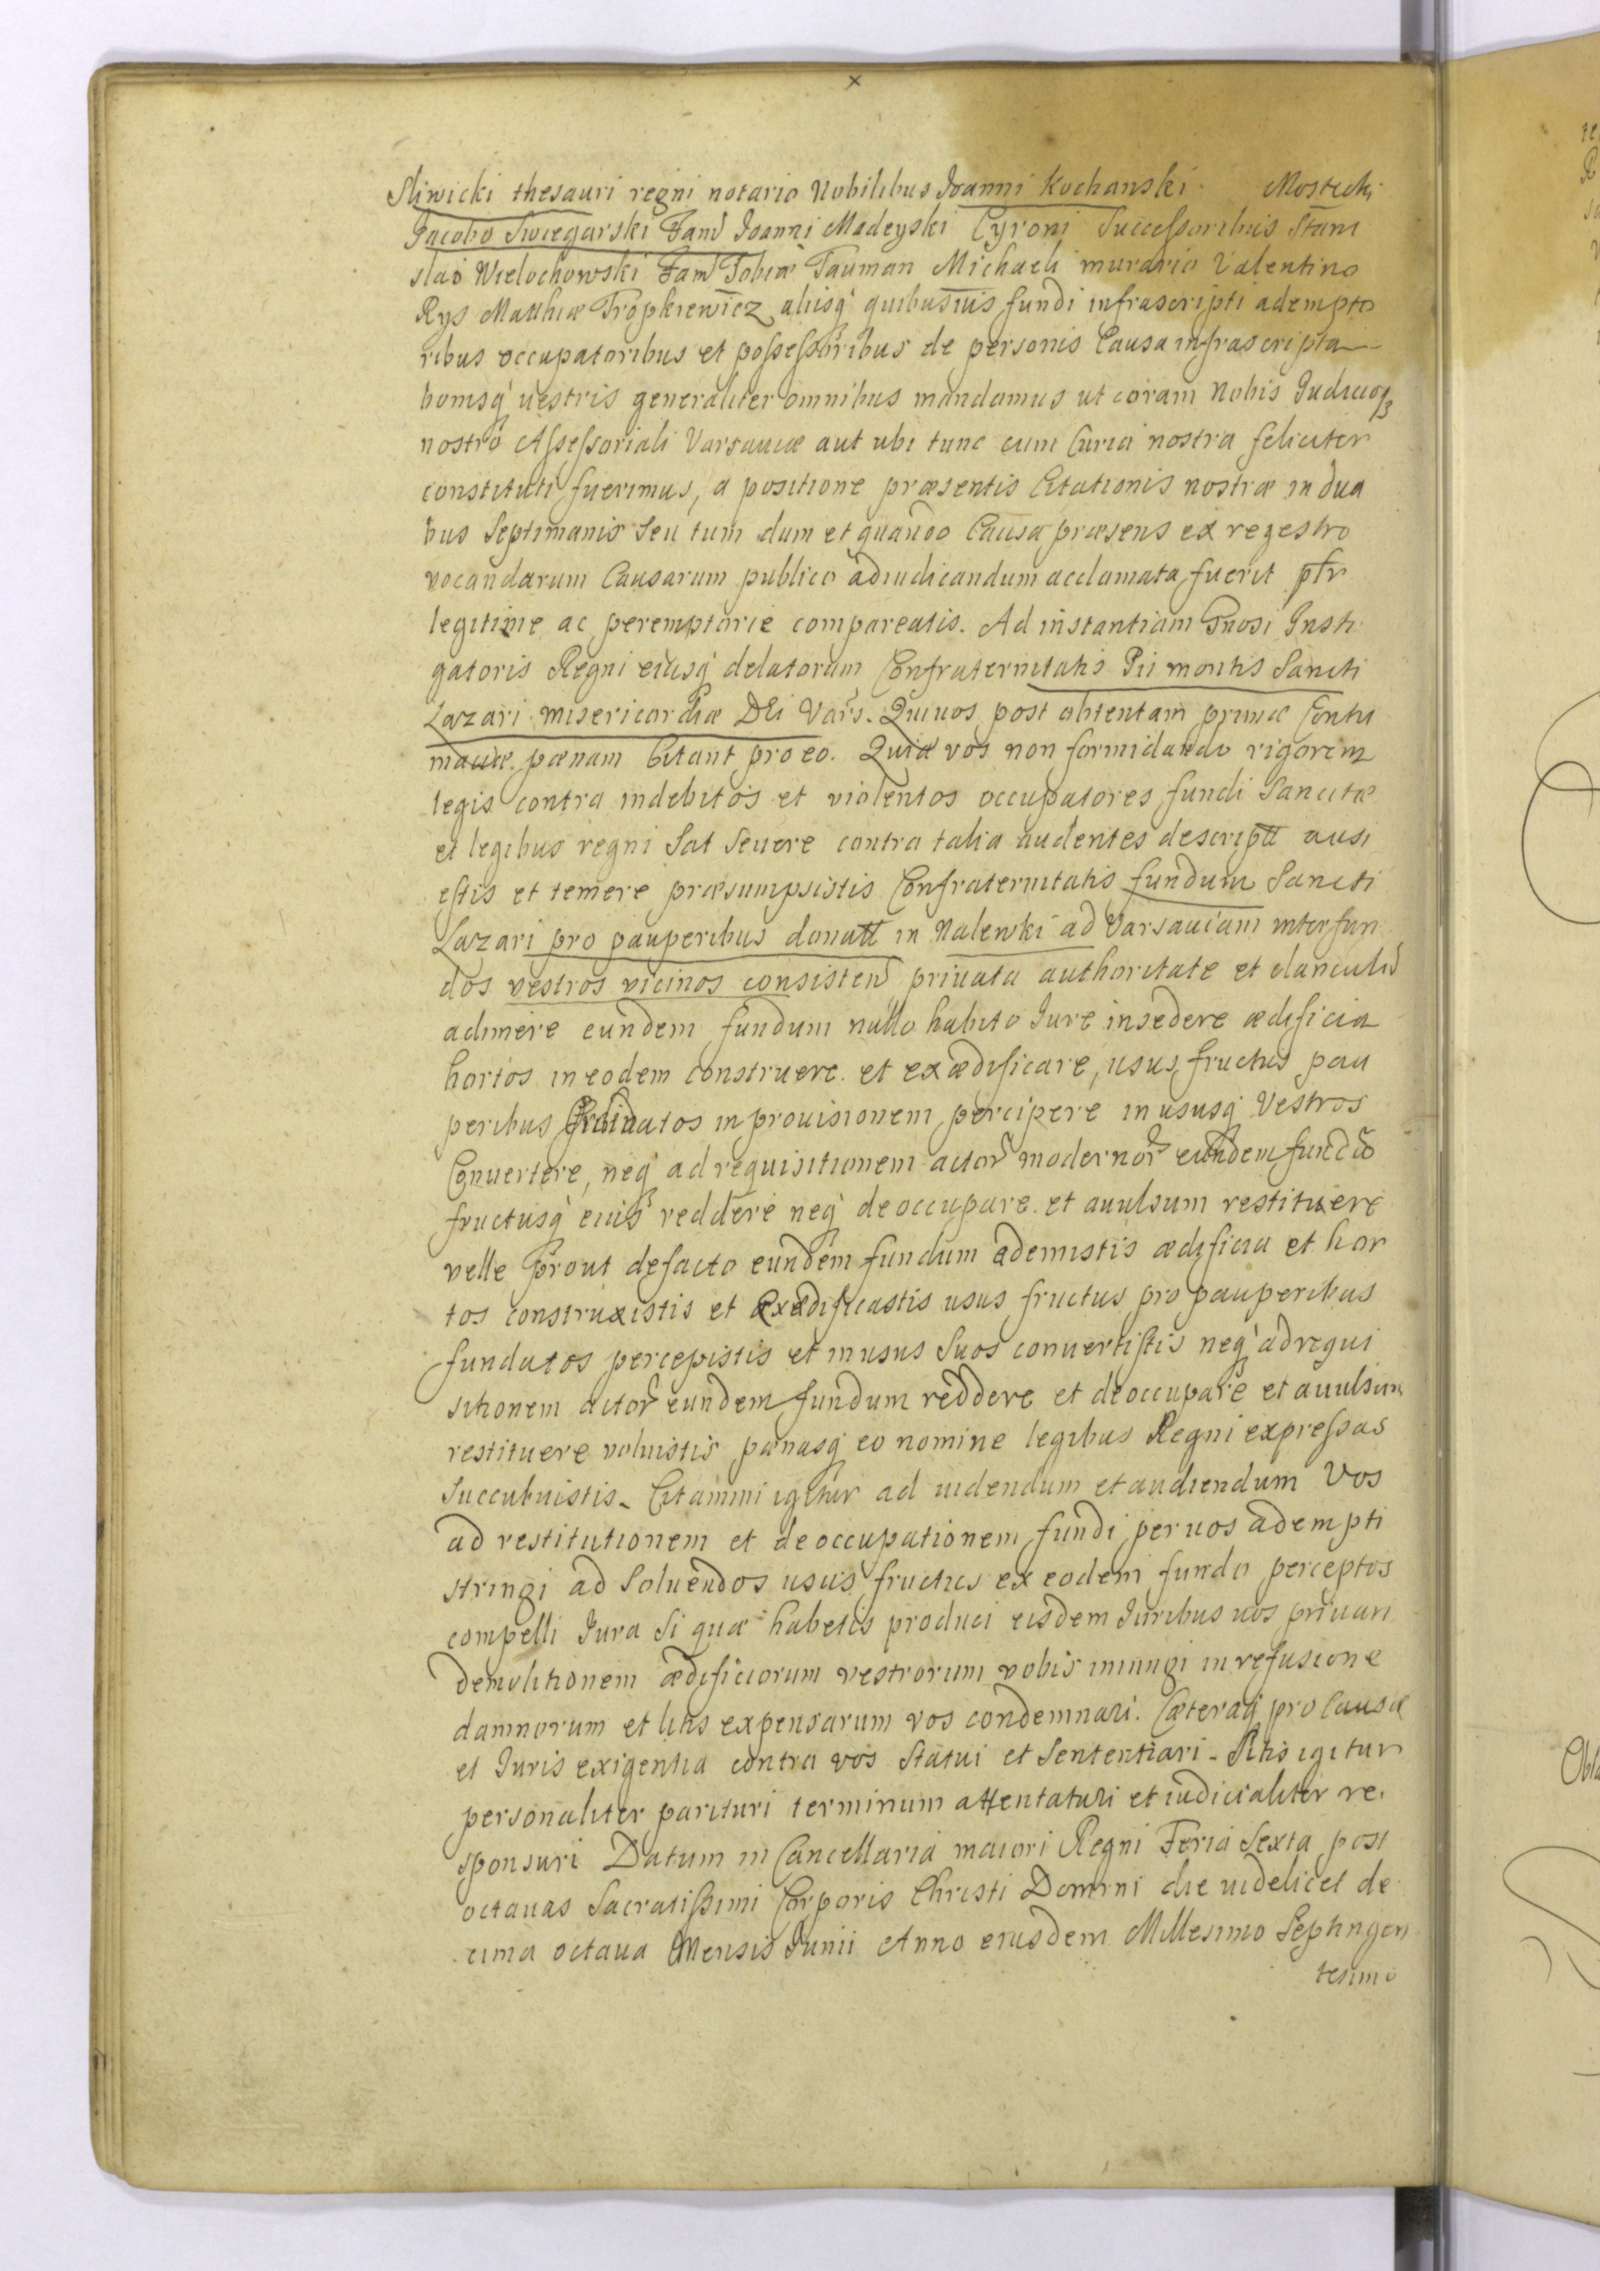 Sliwicki thesauri regni notario Nobilibus Joanni Kochanski Mostecki
Jacobo Swiegarski Fam̃ Joanni Madeyski Cyroni Successoribus Stani
slao Wielochowski Fam̃ Tobiæ Tauman Michaeli murario Valentino
Rys Matthiæ Tropkiewicz alijsq̀ quibusuis fundi infrascripti adempto
ribus occupatoribus et possessoribus de personis Causa infrascripta
bonisq̀ vestris generaliter omnibus mandamus ut coram Nobis Judicioq3
nostro Assessoriali Varsauiæ aut ubi tunc cum Curia nostra feliciter
constituti fuerimus, a positione præsentis Citationis nostræ in dua
bus Septimanis Seu tum dum et quando Causa præsens ex regestro
vocandarum Causarum publico adiudicandum acclamata fuerit
legitime ac peremptorie compareatis. Ad instantiam Gnosi Insti
gatoris Regni eiusq̀ delatorum Confraternitatis Pii montis Sancti
Lazari misericordiæ DEi Vars. Qui uos post obtentam primæ Contu
maciæ pænam Citant pro eo. Quia vos non formidando rigorem
legis contra indebitos et violentos occupatores fundi Sancitæ
et legibus regni Sat Seuere contra talia audentes descriptæ ausi
estis et temere præsumpsistis Confraternitatis fundum Sancti
Lazari pro pauperibus donatt in Nalewki ad Varsauiam inter fun
dos vestros vicinos consisten̄ priuata authoritate et clanculũ
adimere eundem fundum nullo habito Jure insedere ædificia
hortos in eodem construere et exædificare, usus fructus pau
peribus Ordinatos in prouisionem percipere in ususq̀ Vestros
Conuertere, neq̀ ad requisitionem actor̃ modernor̃ eundem fundũ
fructusq̀ eius reddere neq̀ deoccupare et auulsum restituere
velle Prout defacto eundem fundum ademistis ædificia et hor
tos construxistis et exædificastis usus fructus pro pauperibus
fundatos percepistis et in usus Suos conuertistis neq̀ ad requi
sitionem actor̃ eundem fundum reddere et deoccupare et auulsum
restituere voluistis pænasq̀ eo nomine legibus Regni expressas
Succubuistis. Citamini igitur ad uidendum et audiendum Vos
ad restitutionem et deoccupationem fundi per uos adempti
stringi ad Soluendos usus fructus ex eodem fundo perceptos
compelli Jura Si quæ habetis produci eisdem Juribus uos priuari
demolitionem ædificiorum vestrorum vobis iniungi in refusione
damnorum et litis expensarum vos condemnari. Cæteraq̀ pro Causæ
et Juris exigentia contra vos Statui et Sententiari. Sitis igitur
personaliter parituri terminum attentaturi et iudicialiter re,
sponsuri Datum in Cancellaria maiori Regni Feria Sexta post
octauas Sacratissimi Corporis Christi Domini die uidelicet de
cima octaua Mensis Junii Anno eiusdem Millesimo Septingen
tesimo